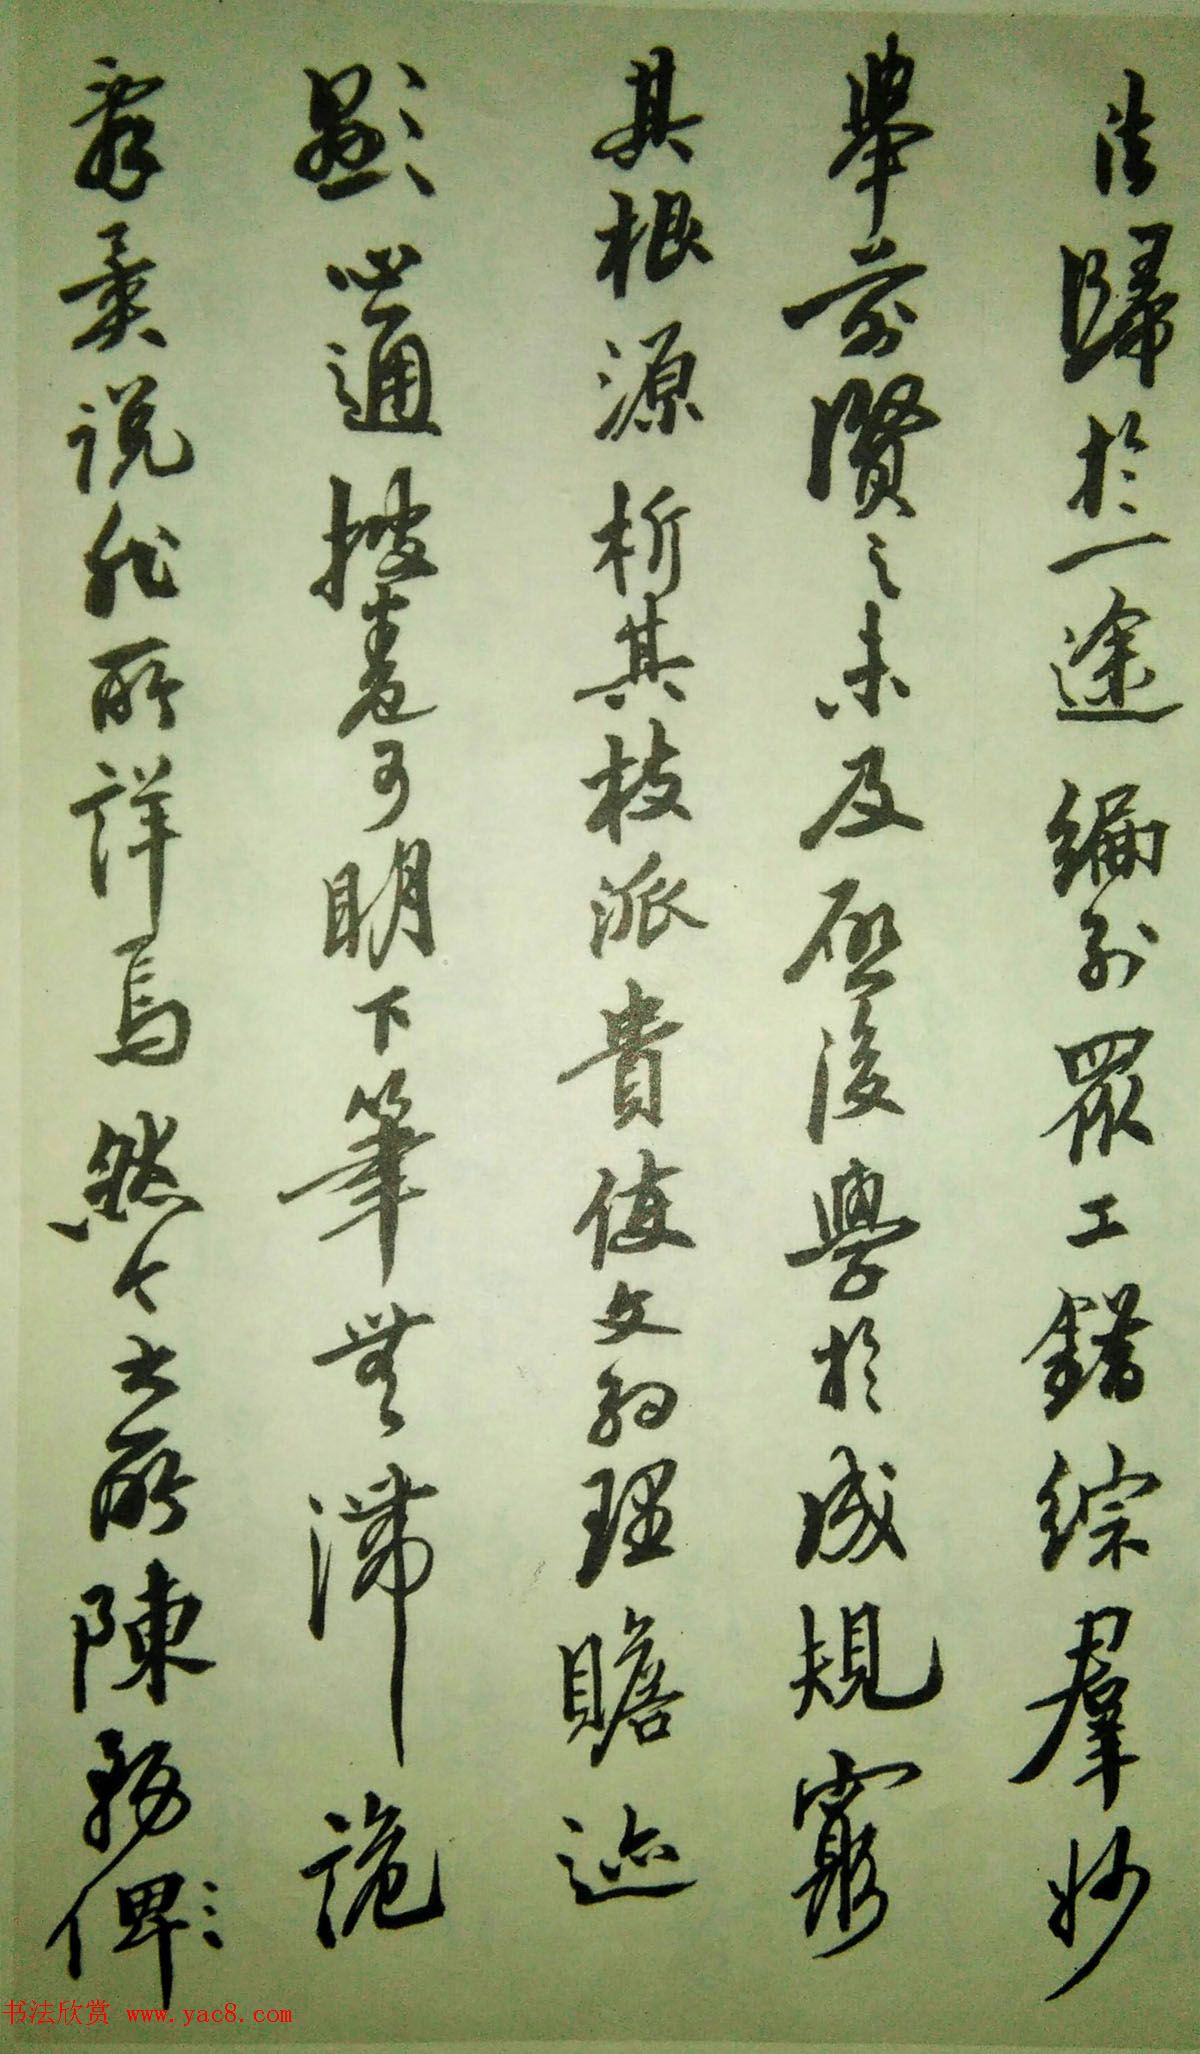 法歸於一途編列眾工錯綜羣妙
舉前賢之未及啟後學於成規窮
其根源析其枝派貴使文約理贍迹
顯心通披卷可明下筆無滯詭
辭異說非所詳焉然今之所陳務俾
书法欣赏 www.yac8.com